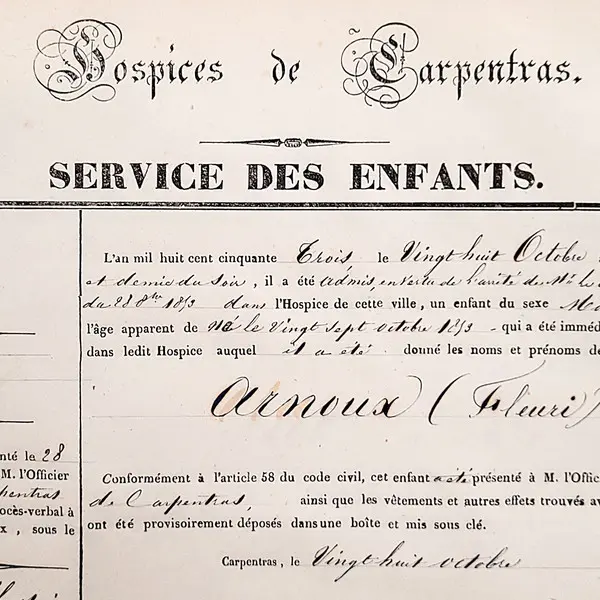 Hospices de Carpentras.
SERVICE DES ENFANTS.
L'an mil huit cent cinquante Trois le Vingt huit Octobre
et demie du Soir, il a été admis, en vertu de l'arrêté de Mr le
du 28 8bre 1853 dans l'Hospice de cette ville, un enfant du sexe
l'âge apparent de né le Vingt sept octobre 1853 - qui a été imméd
dans ledit Hospice auquel il a été donné les noms et prénoms de
Arnoux (Fleuri)
Conformément à l'article 58 du code civil, cet enfant a été présenté à M. l'Offic
de Carpentras, ainsi que les vêtements et autres effets trouvés av
ont été provisoirement déposés dans une boîte et mis sous clé.
Carpentras, le Vingt huit octobre
nté le 28
M. l'Officier
pentras
ocès-verbal à
x, sous le